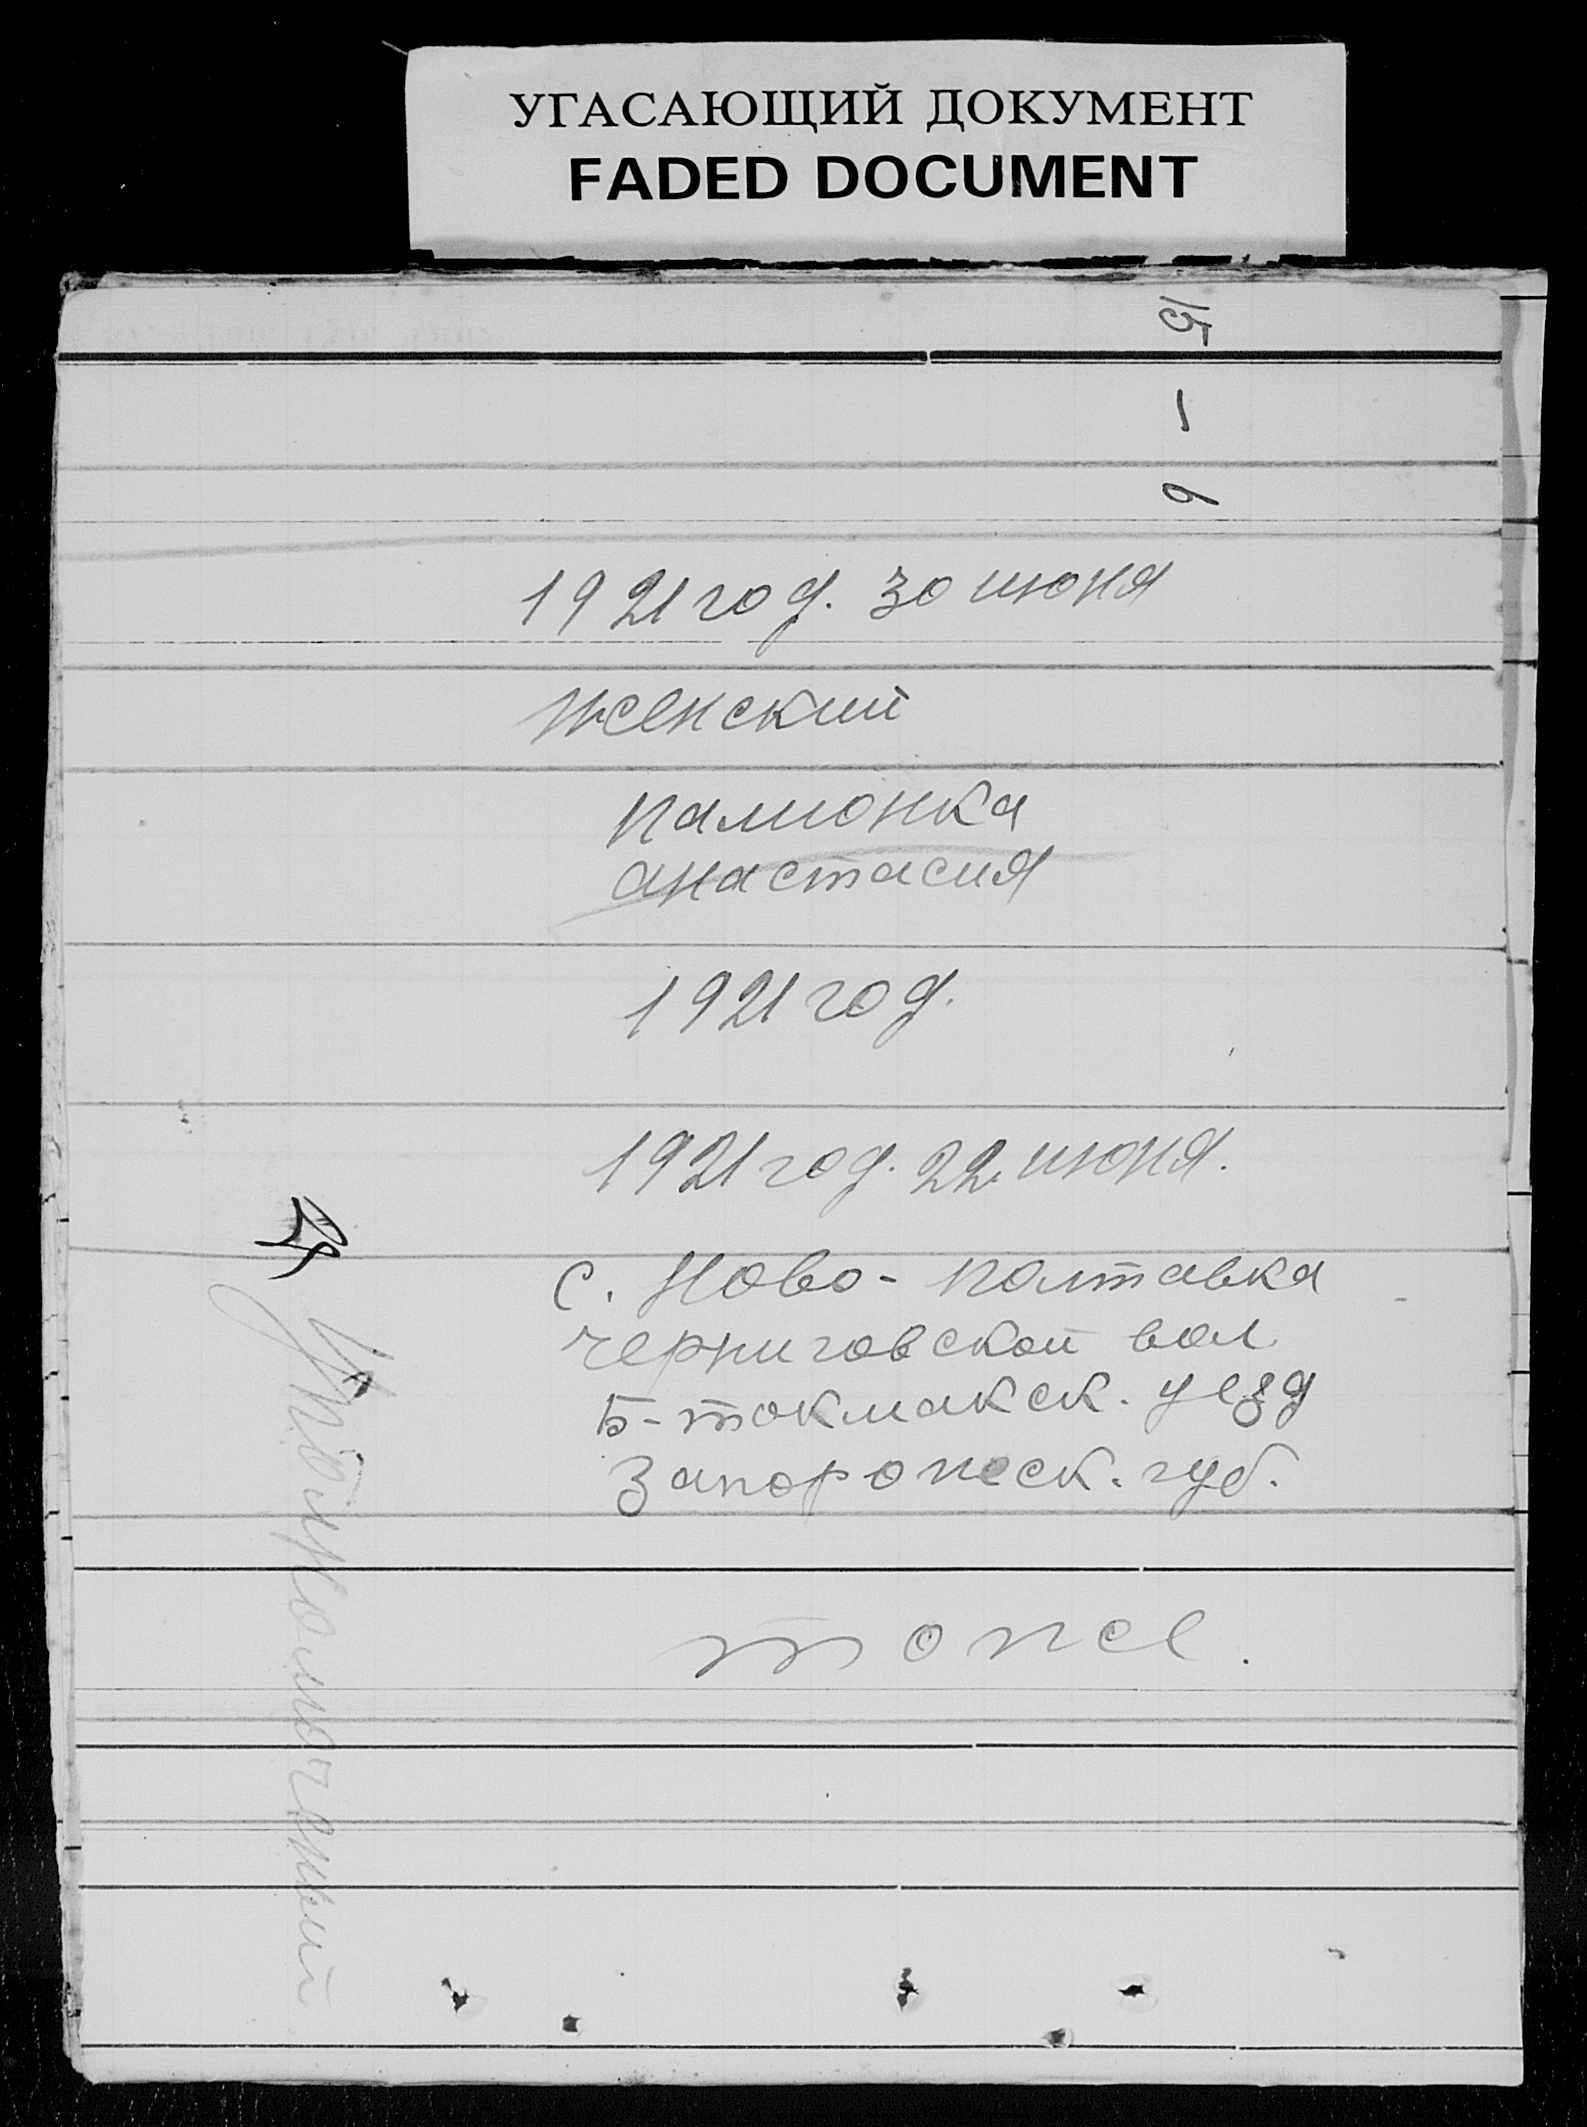 УГАСАЮЩИЙ ДОКУМЕНТ
FADED DOCUMENT
1921 год. 30 июня
женский
Палионка
анастасия
1921 год.
1921 год. 22 июня.
с. Ново-Полтавка
черниговской вол
Б-токмакск. уезд
Запорожск. губ.
тоже.